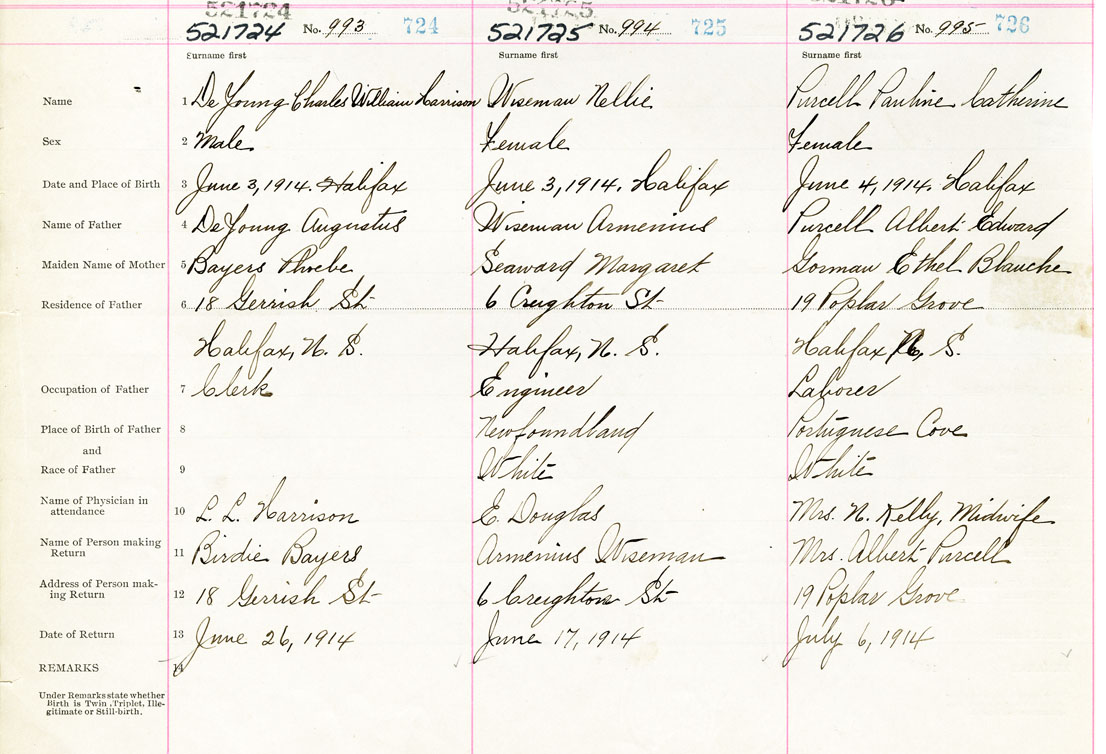 521724 521725
521724 No. 993 724 521725 No. 994 725 521726 No. 995 726
Surname first Surname first Surname first
Name 1 De Young Charles William Harrison Wiseman Nellie Purcell Pauline Catherine
Sex 2 Male Female Female
Date and Place of Birth 3 June 3, 1914. Halifax June 3, 1914. Halifax June 4, 1914. Halifax
Name of Father 4 De Young Augustus Wiseman Armenius Purcell Albert Edward
Maiden Name of Mother 5 Bayers Phoebe Seaward Margaret Gorman Ethel Blanche
Residence of Father 6 18 Gerrish St 6 Creighton St 19 Poplar Grove
Halifax, N. S. Halifax, N. S. Halifax N. S.
Occupation of Father 7 Clerk Engineer Laborer
Place of Birth of Father 8 Newfoundland Portuguese Cove
and
Race of Father 9 White White
Name of Physician in
attendance 10 L. L. Harrison E. Douglas Mrs. N. Kelly, Midwife
Name of Person making
Return 11 Birdie Bayers Armenius Wiseman Mrs. Albert Purcell
Address of Person mak-
ing Return 12 18 Gerrish St 6 Creighton St 19 Poplar Grove
Date of Return 13 June 26, 1914 June 17, 1914 July 6, 1914
REMARKS 14
Under Remarks state whether
Birth is Twin, Triplet, Ille-
gitimate or Still-birth.